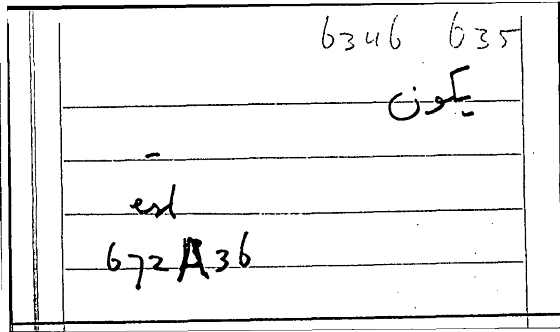 6346 635
يكون
-
end
672A36